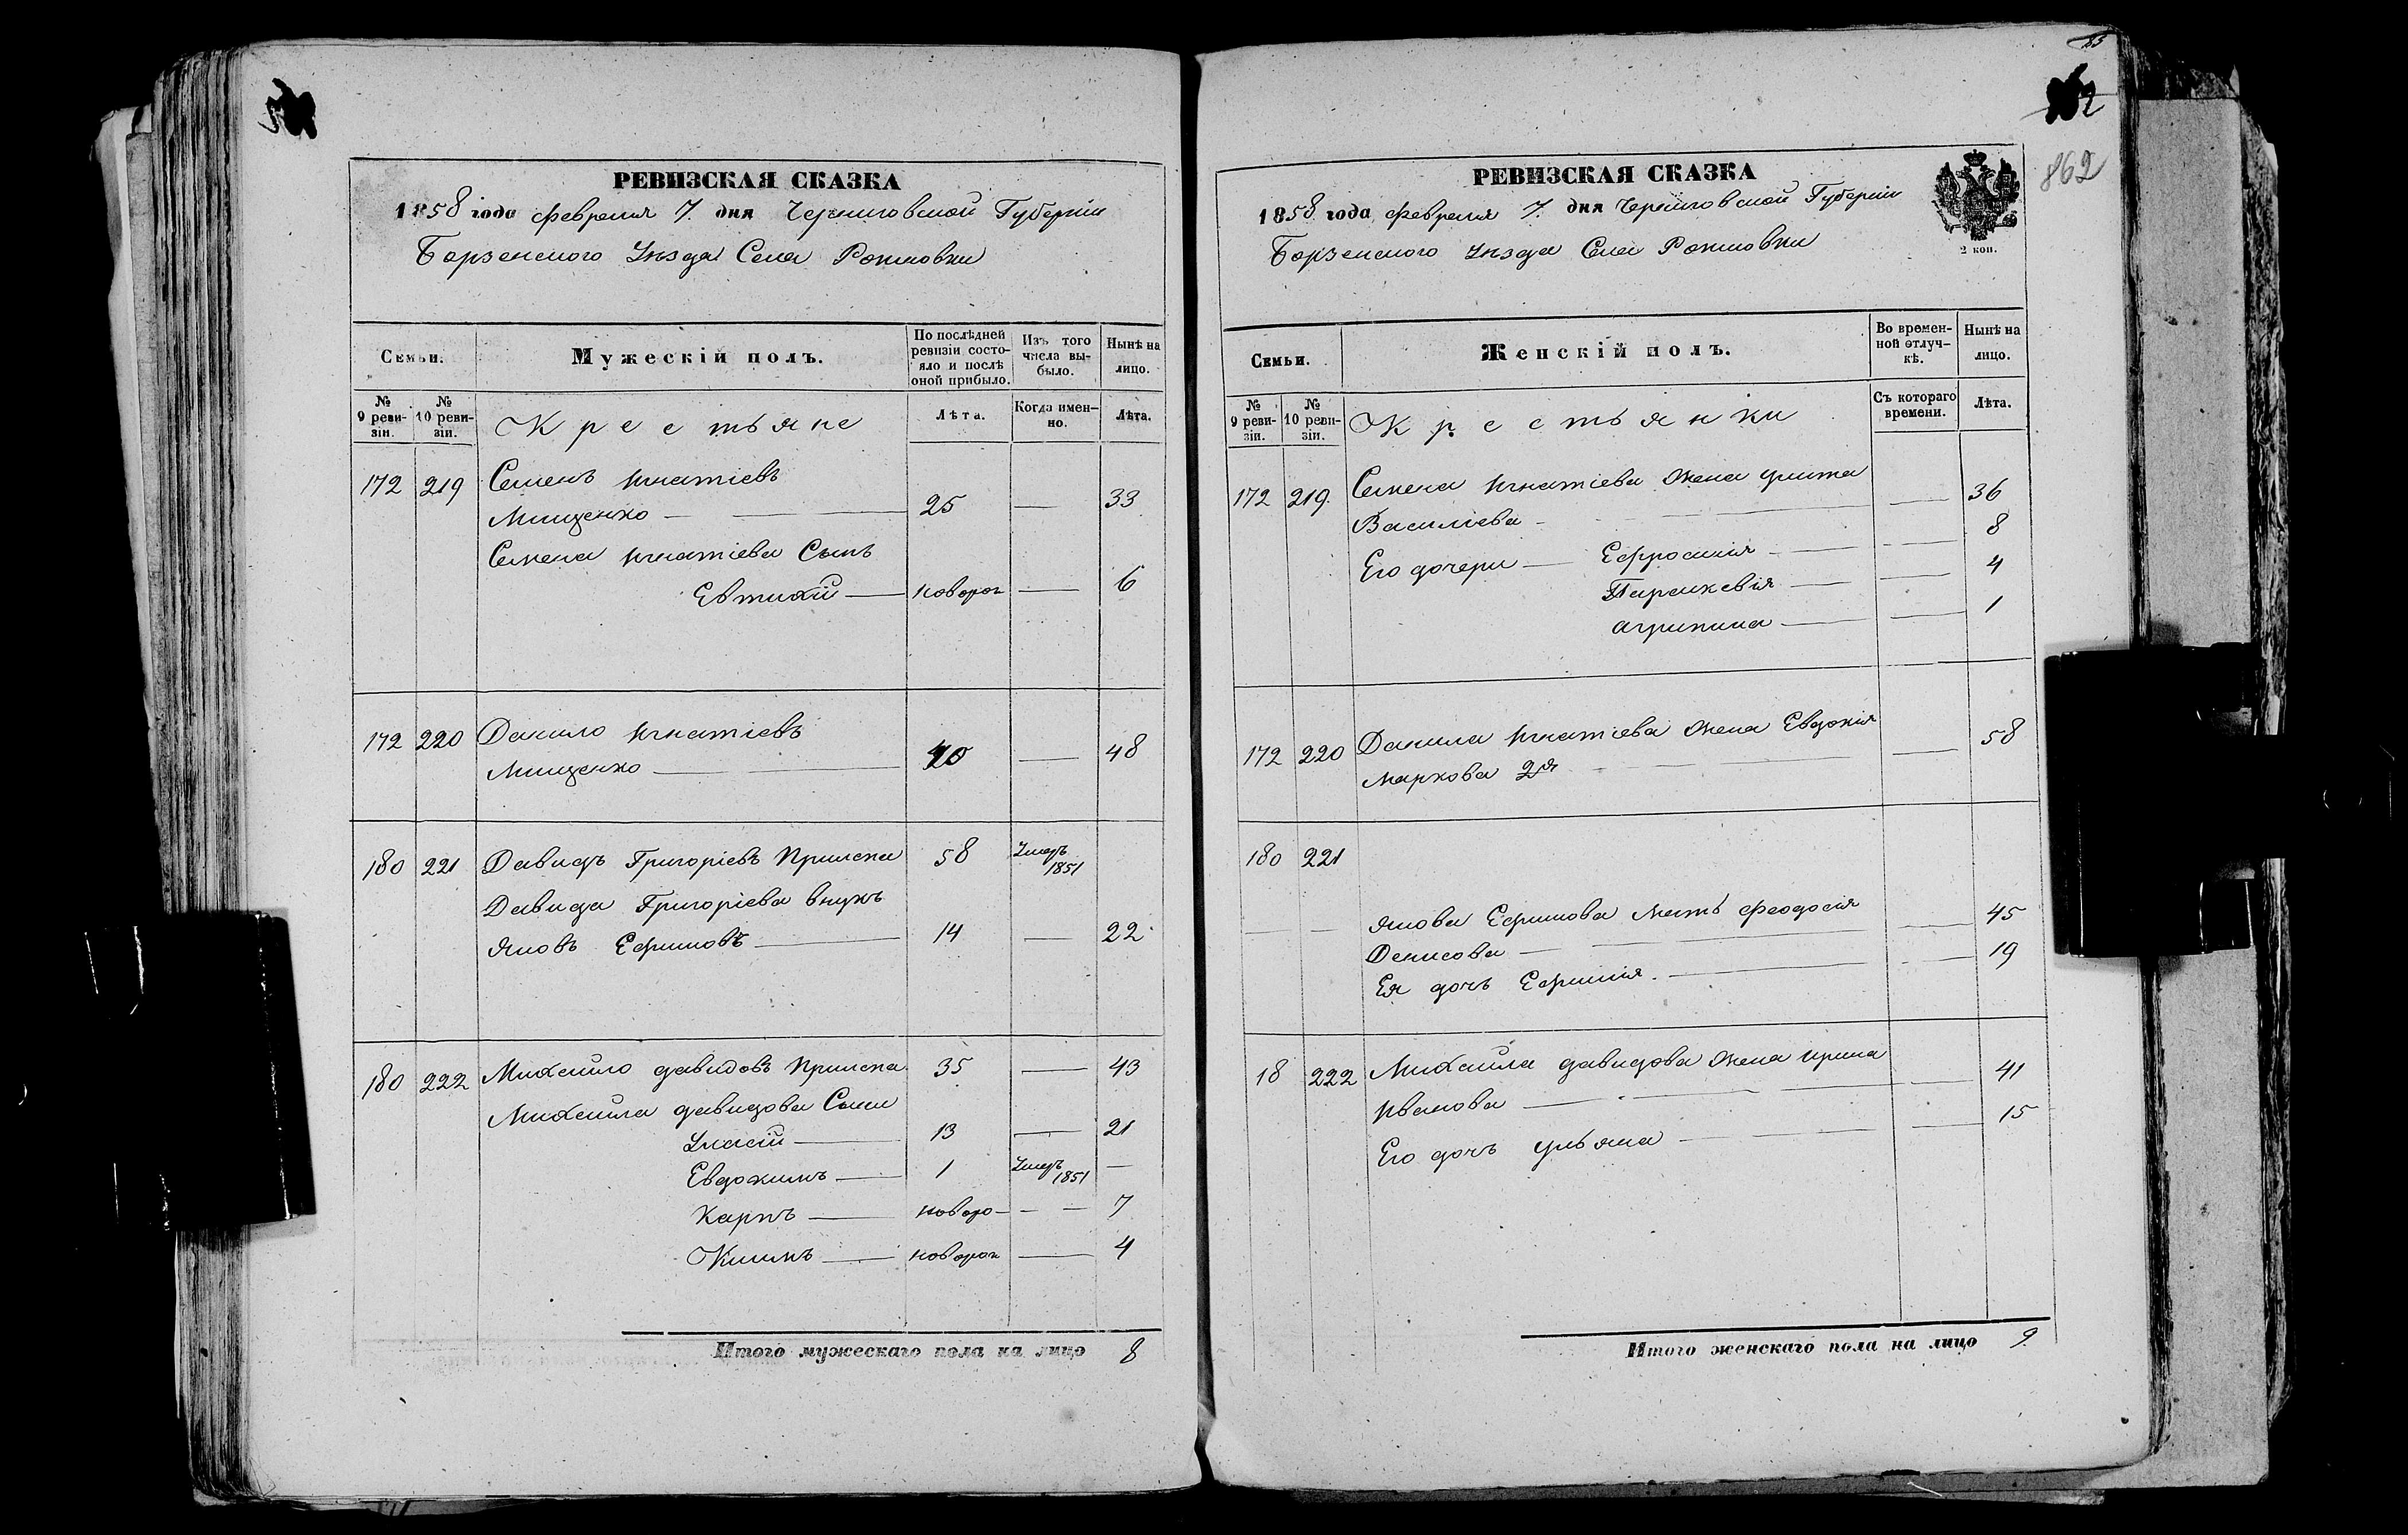 РЕВИЗСКАЯ СКАЗКА
1858 года февраля 7. дня Черниговской Губерніи
Борзенского Уезда Села Рожновки
Семьи. Мужескій полъ. По послѣдней ревизіи состояло и послѣ оной прибыло. Изъ того числа выбыло. Нынѣ на лицо.
№ 9 ревизіи. № 10 ревизіи. Крестьяне Лѣта. Когда именно. Лѣта.
172 219 Семенъ Игнатіевъ
Мищенко 25 — 33
Семена Игнатіева Сынъ
Евтихій — новорож — 6
172 220 Данило Игнатіевъ
Мищенко — 40 — 48
180 221 Давидъ Григоріевъ 58 Умеръ 1851
Давида Григоріева внукъ
Яковъ Ефимовъ — 14 — 22
180 222 Михайло давидовъ 35 — 43
Михайла давидова Сыни
Уласій — 13 — 21
Евдокимъ — 1 Умеръ 1851 —
Карпъ — новоро — — 7
Климъ — новорож — 4
Итого мужескаго пола на лицо 8
862
РЕВИЗСКАЯ СКАЗКА
1858 года февраля 7. дня Черниговской Губерніи
Борзенского Уезда Села Рожновки
2 коп.
Семьи. Женскій полъ. Во временной отлучкѣ. Нынѣ на лицо.
№ 9 ревизіи. № 10 ревизіи. Крестьянки Съ котораго времени. Лѣта.
172 219. Семена Игнатіева жена улита
Василіева — — 36
Его дочери — Ефросинія — — 8
Параскевія — — 4
агрипина — — 1
172 220 Данила Игнатіева жена Евдокія
Маркова 2я — 58
180 221
— — Якова Ефимова мать феодосія
Денисова — — 45
Ея дочь Ефимія. — — 19
18 222 Михайла давидова жена ирина
Иванова — — 41
Его дочь ульяна — — 15
Итого женскаго пола на лицо 9.